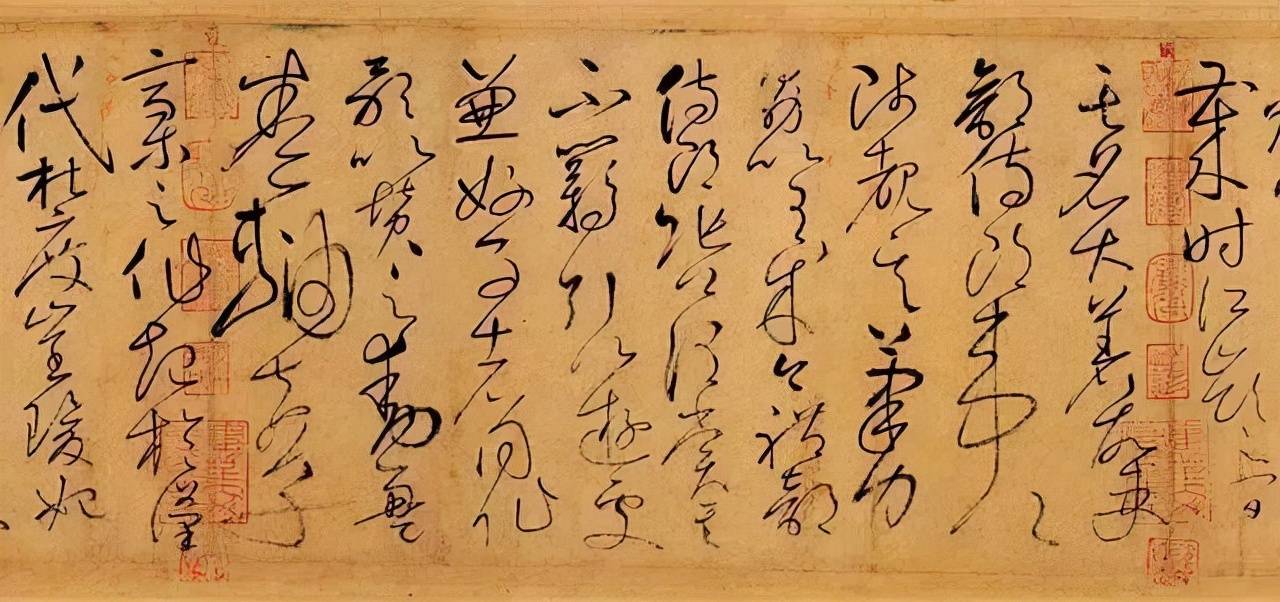 歲時江嶺之間
其名大著故吏
部侍郎韋公
陟覩其筆力
勗以有成今禮部
侍郎張公謂賞其
不羈引以遊處
兼好事者同作
歌以贊之動盈
卷軸夫草
稾之作起於漢
代杜度崔瑗始